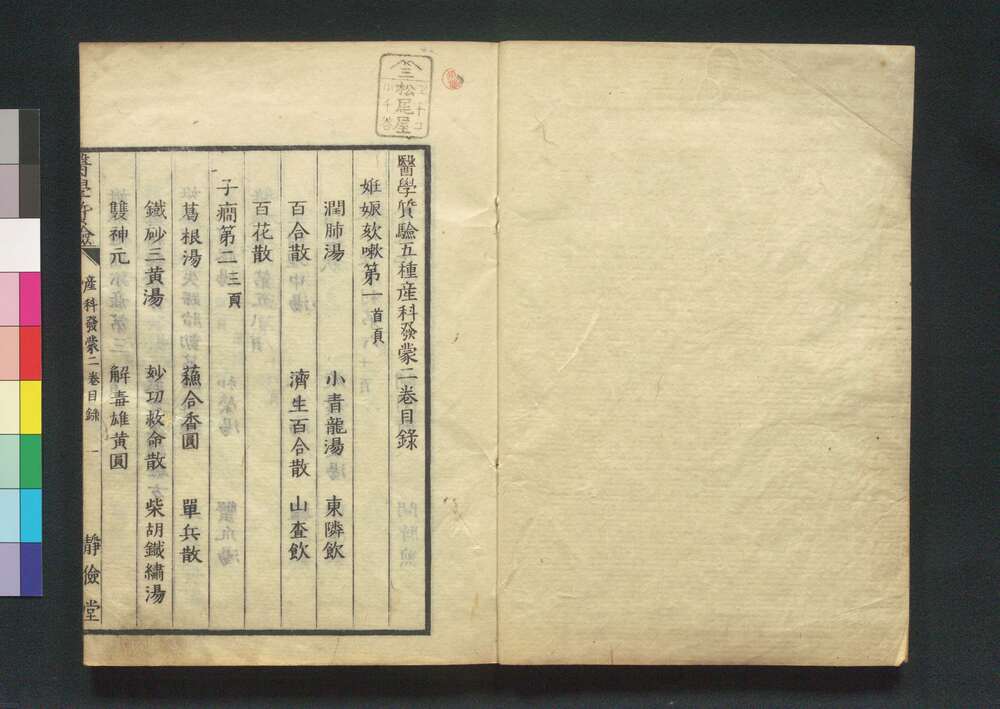 松尾屋
醫學質驗五種産科發蒙二卷目錄
姙娠欬嗽第一首頁
潤肺湯 小青龍湯 東隣飲
百合散 濟生百合散 山査飲
百花散
子癇第二三頁
葛根湯 蘓合香圓 單兵散
鐵砂三黄湯 妙功救命散 柴胡鐵繡湯
雙神元 解毒雄黄圓
醫學質驗
産科發蒙二卷目録 一 靜儉堂